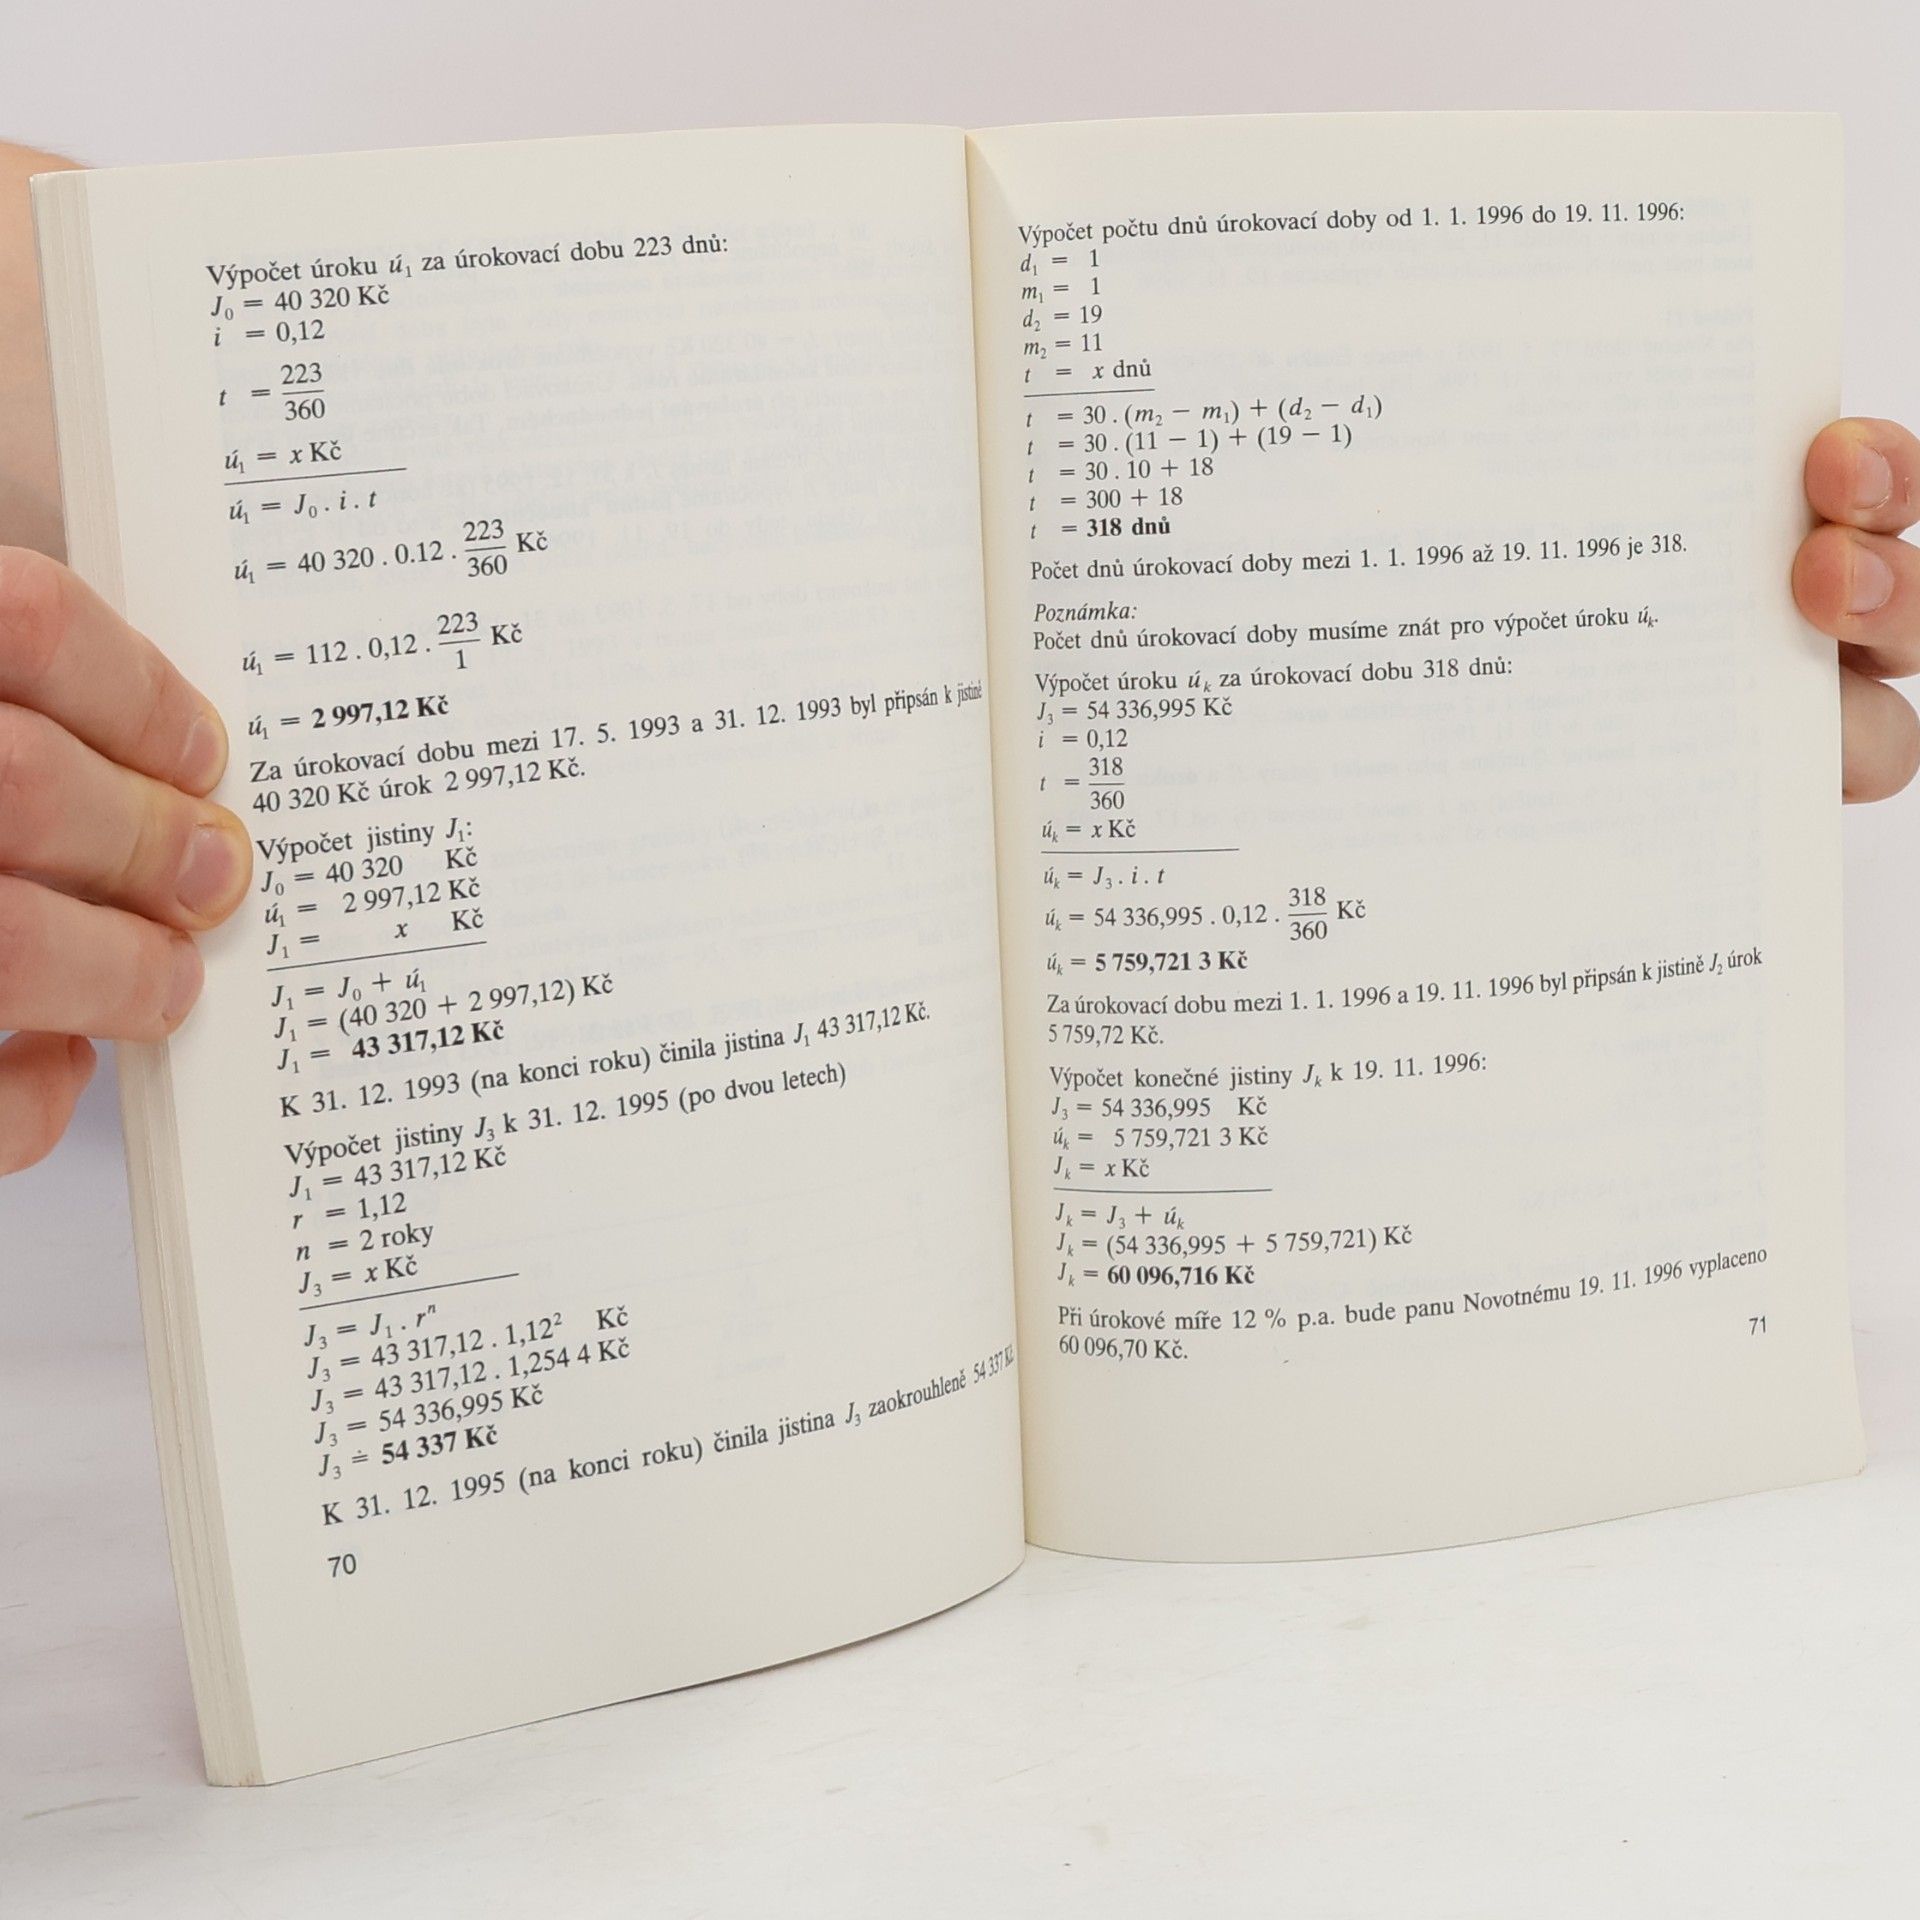 Výpočet úroku ú₁ za úrokovací dobu 223 dnů:
J₀ = 40 320 Kč
i = 0,12
t = 223/360
ú₁ = x Kč
ú₁ = J₀ . i . t
ú₁ = 40 320 . 0.12 . 223/360 Kč
ú₁ = 112 . 0,12 . 223/1 Kč
ú₁ = 2 997,12 Kč
Za úrokovací dobu mezi 17. 5. 1993 a 31. 12. 1993 byl připsán k jistině
40 320 Kč úrok 2 997,12 Kč.
Výpočet jistiny J₁:
J₀ = 40 320 Kč
ú₁ = 2 997,12 Kč
J₁ = x Kč
J₁ = J₀ + ú₁
J₁ = (40 320 + 2 997,12) Kč
J₁ = 43 317,12 Kč
K 31. 12. 1993 (na konci roku) činila jistina J₁ 43 317,12 Kč.
Výpočet jistiny J₃ k 31. 12. 1995 (po dvou letech)
J₁ = 43 317,12 Kč
r = 1,12
n = 2 roky
J₃ = x Kč
J₃ = J₁ . rⁿ
J₃ = 43 317,12 . 1,12² Kč
J₃ = 43 317,12 . 1,254 4 Kč
J₃ = 54 336,995 Kč
J₃ ≐ 54 337 Kč
K 31. 12. 1995 (na konci roku) činila jistina J₃ zaokrouhleně 54 337 Kč
70
Výpočet počtu dnů úrokovací doby od 1. 1. 1996 do 19. 11. 1996:
d₁ = 1
m₁ = 1
d₂ = 19
m₂ = 11
t = x dnů
t = 30 . (m₂ − m₁) + (d₂ − d₁)
t = 30 . (11 − 1) + (19 − 1)
t = 30 . 10 + 18
t = 300 + 18
t = 318 dnů
Počet dnů úrokovací doby mezi 1. 1. 1996 až 19. 11. 1996 je 318.
Poznámka:
Počet dnů úrokovací doby musíme znát pro výpočet úroku úₖ.
Výpočet úroku úₖ za úrokovací dobu 318 dnů:
J₃ = 54 336,995 Kč
i = 0,12
t = 318/360
úₖ = x Kč
úₖ = J₃ . i . t
úₖ = 54 336,995 . 0,12 . 318/360 Kč
úₖ = 5 759,721 3 Kč
Za úrokovací dobu mezi 1. 1. 1996 a 19. 11. 1996 byl připsán k jistině J₂ úrok
5 759,72 Kč.
Výpočet konečné jistiny Jₖ k 19. 11. 1996:
J₃ = 54 336,995 Kč
úₖ = 5 759,721 3 Kč
Jₖ = x Kč
Jₖ = J₃ + úₖ
Jₖ = (54 336,995 + 5 759,721) Kč
Jₖ = 60 096,716 Kč
Při úrokové míře 12 % p.a. bude panu Novotnému 19. 11. 1996 vyplaceno
60 096,70 Kč.
71